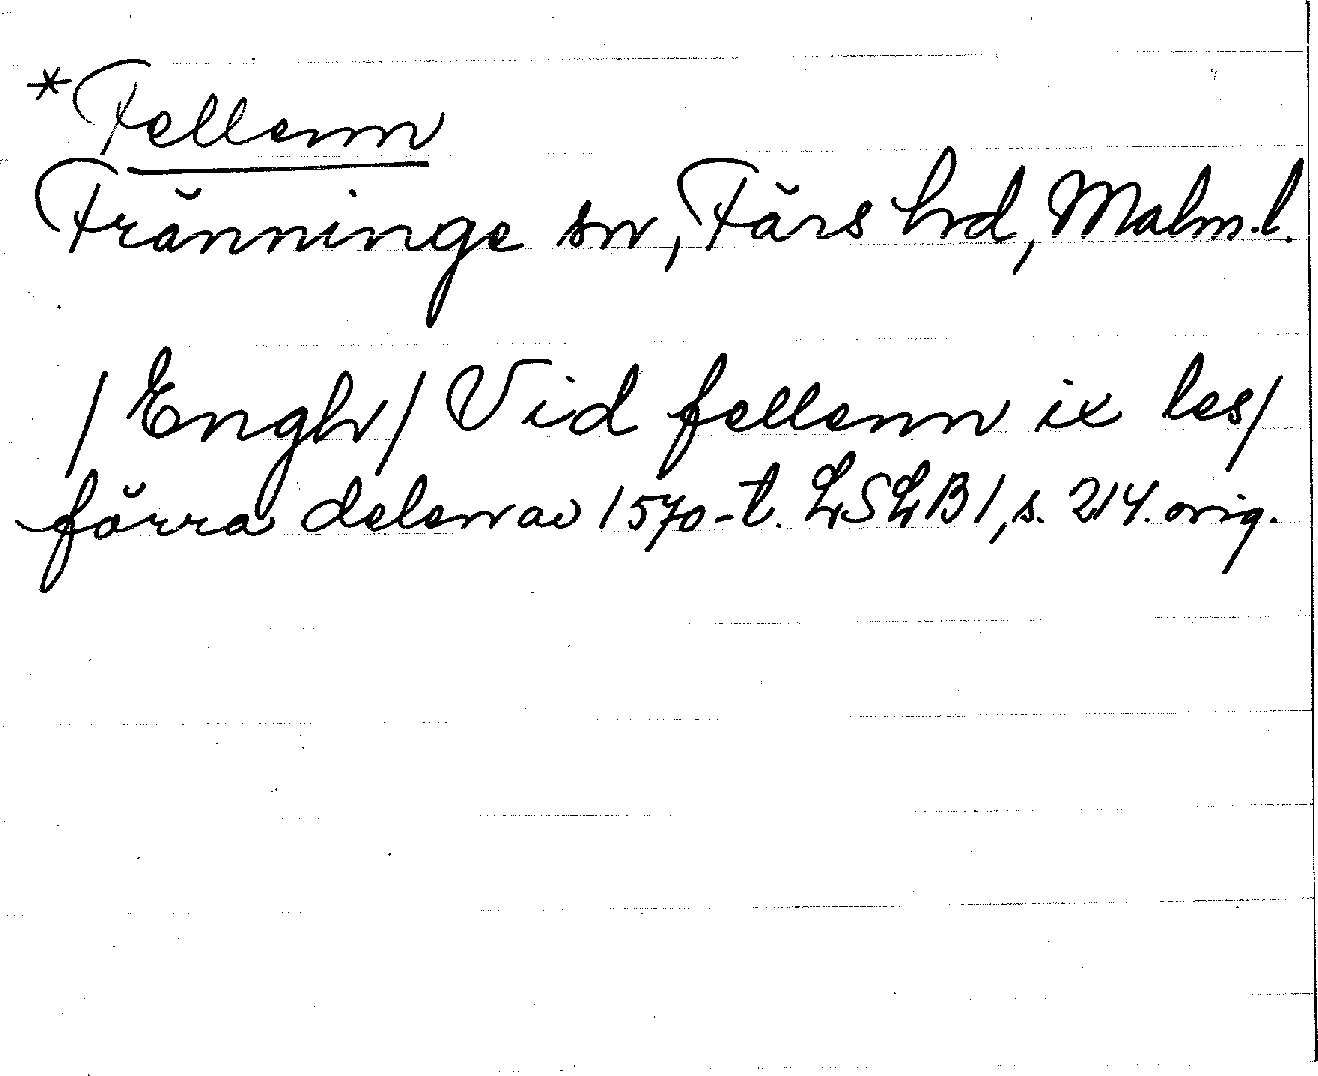 *Fellenn
Fränninge sn, Färs hd, Malm.l.
/Engh/ Vid fellenn ix les/
förra delen av 1570-t. LSLB1, s. 214. orig.